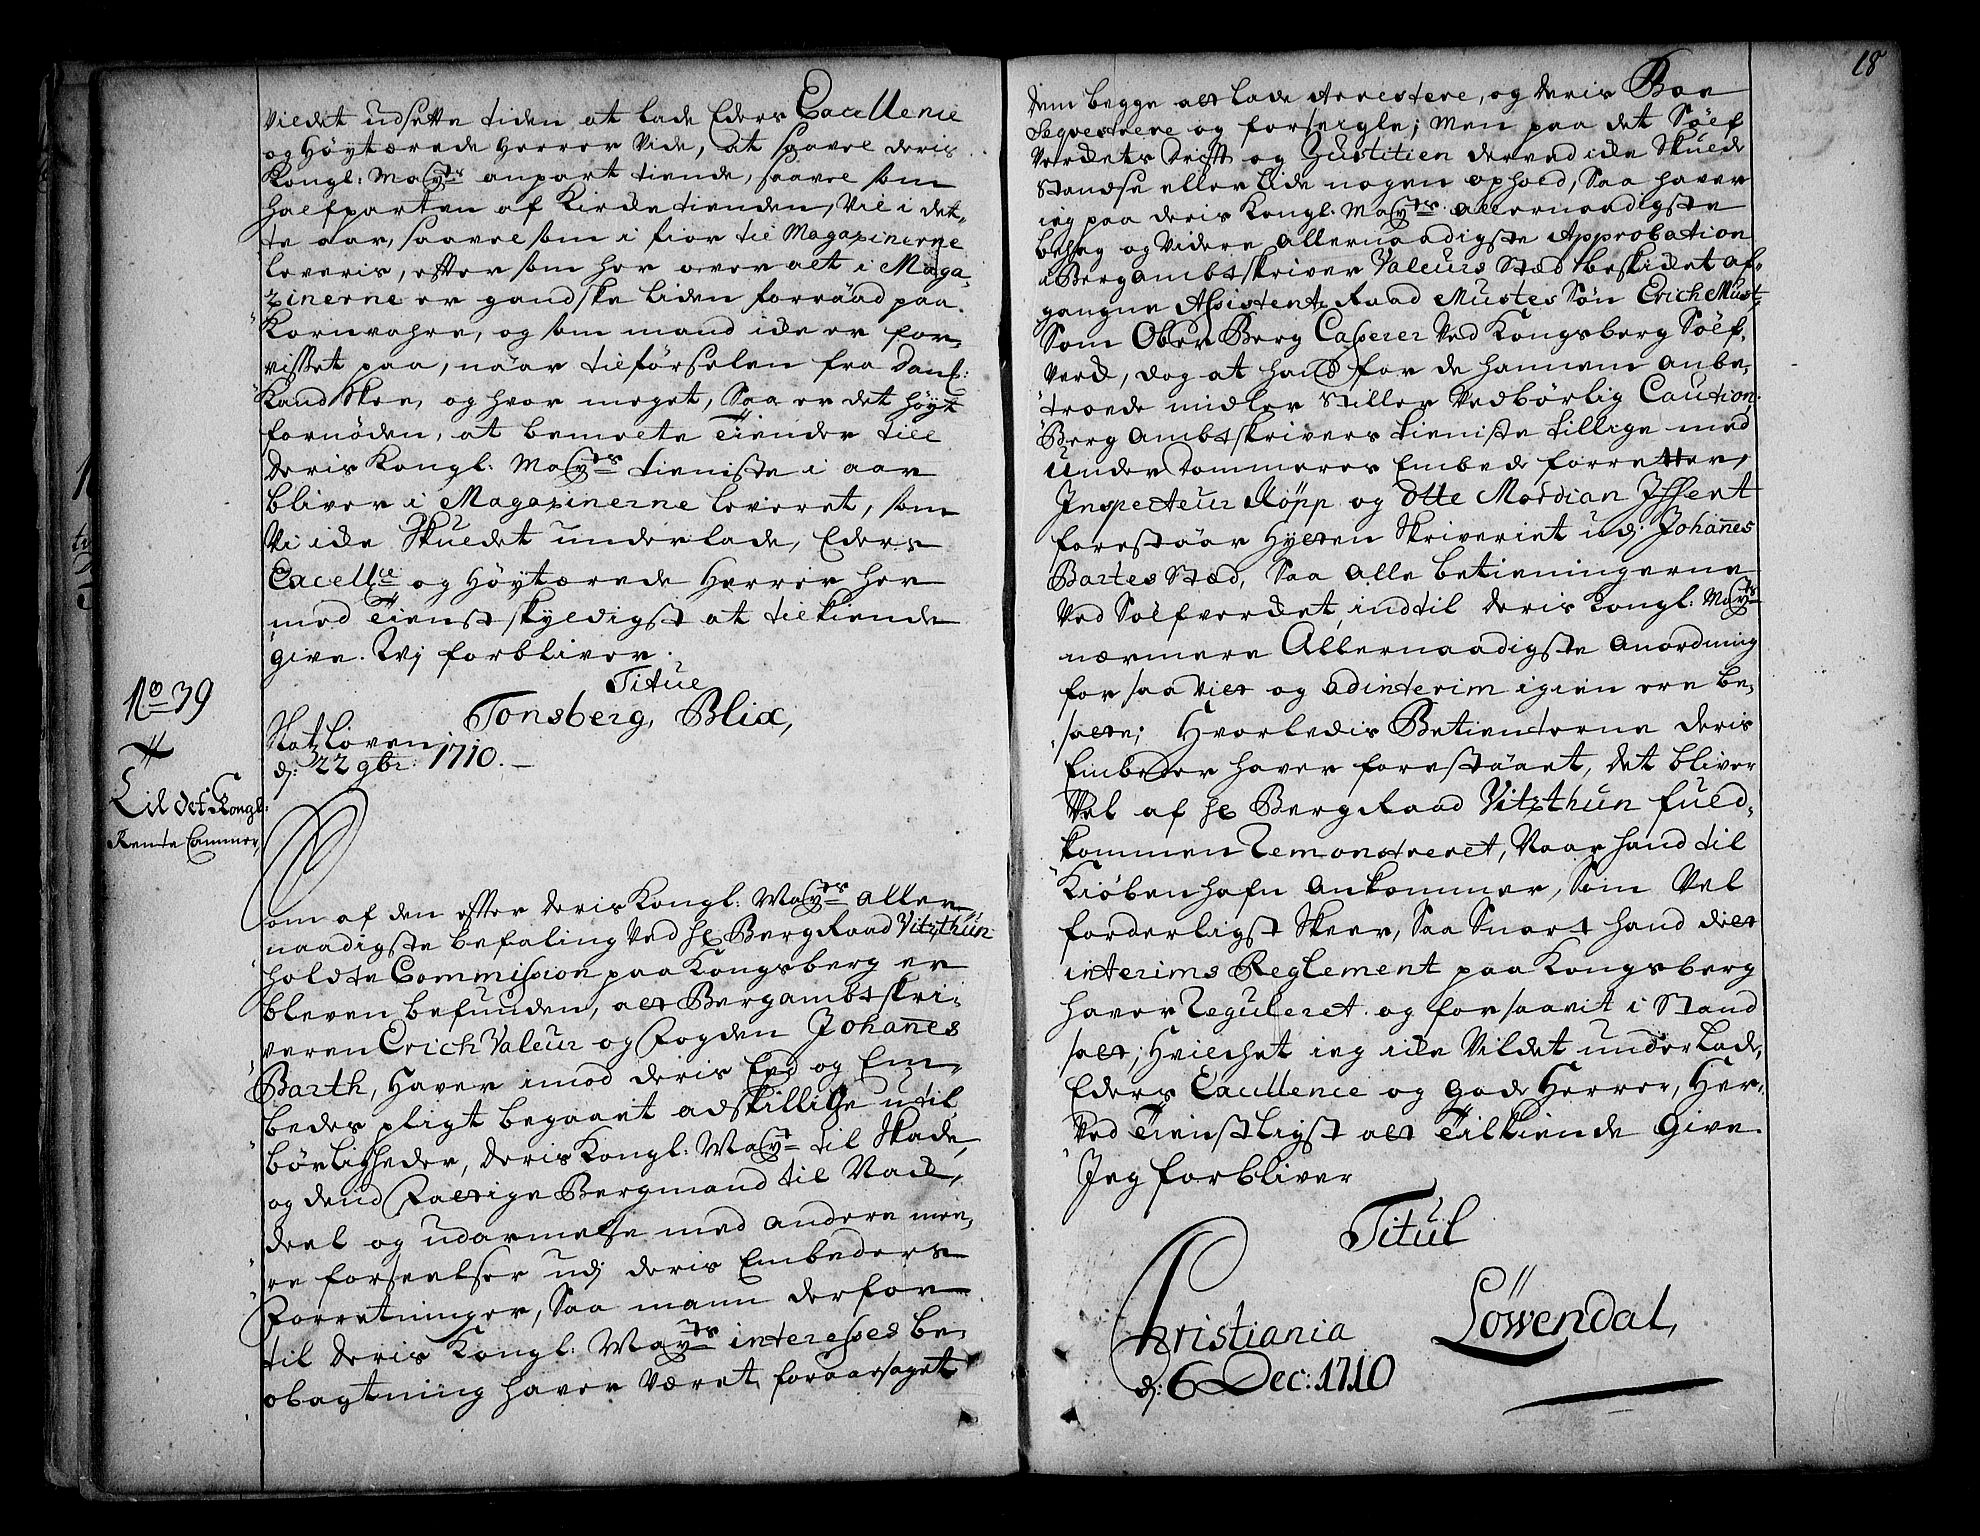 Vildet udsette tiden at lade Eders Excellence
og Høytærede Herrer Vide, at saavel deris
Kongl: Mayts anpart tiende, saavel som
halfparten af Kircketienden, Vil i det-
te aar, saavel som i fior til Magazinerne
leveris, efter som her over alt i Maga-
zinerne er gandske liden forraad paa
Kornvahre, og som mand icke er for-
visset paa, naar tilførselen fra Dan:
kand Skee, og hvor meget, Saa er det høyt
fornøden, at bemelte Tiender till
Deris Kongl: Mayts tieniste i aar
bliver i Magazinerne leveret, som
Vi icke Skuldet underlade, Eders
Excellce og Høytærede Herrer her
med Tienstskyldigst at tilkiende
give. Wj forbliver.
Titul
Tonsberg, Blix,
Slotzloven
d: 22 9br: 1710.
No 39
Til det Kongl:
Rente Cammer,
Som af den efter Deris Kongl: Mayts aller-
naadigste befaling Ved Hr BergRaad Vitzthun
holdte Commission paa Kongsberg er
bleven befunden, att Bergambtskri-
veren Erich Valeur og Fogden Johannes
Barth, Haver imod deris Eed og Em-
bedes pligt begaaet adskillige util-
børligheder, Deris Kongl: Mayt til Skade,
og dend Fattige Bergmand til Nach-
deel og udarmelse med andere mee-
re forseelser udj deris Embeders
Forretninger, Saa mann derfor
til Deris Kongl: Mayts interesses be-
obagtning haver Været foraarsaget
18
dem begge att lade Arrestere, og deris Boe
Seqvestrere og forseigle; Men paa det Sølf
Verckets Drift og Justitien derved icke Skulde
Standse eller lide nogen ophold, Saa haver
ieg paa deris Kongl: Mayts Allernaadigste
behag og Videre Allernaadigste Approbation
i Bergambtskriver Valeurs Stæd beskicket af-
gangne Assistent Raad Mustes Søn Erich Must
Som Ober Berg Casserer Ved Kongsberg Sølf-
verck, dog at hand for de hannem anbe-
troede midler Stiller Vedbørlig Caution
Berg Ambtskrivers tieniste tillige med
Under Dommerens Embede forretter
Inspecteur Röpp og Otte Mordian Issent
forestaar Hytten Skriveriet udj Johannes
Bartes Stæd, Saa Alle betieningerne
Ved Sølfvercket, indtil Deris Kongl: Mayts
nærmere Allernaadigste Anordning
for saa vit og adinterim igien ere be-
satte; Hvorledis Betienterne Deris
Embeder haver forestaaet, det bliver
Vel af Hr BergRaad Vitzthun fuld-
kommen Remonstreret, Naar hand til
Kiøbenhafn Ankommer, Som Vel
forderligst Skeer, Saa Snart hand dett
interims Reglement paa Kongsberg
haver Reguleret og for saavit i Stand
satt; Hvilchet ieg icke Vildet underlade,
Eders Excellence og gode Herrer, Her-
Ved Tienstligst att Tilkiende Give.
Jeg forbliver
Titul
Christiania
d: 6 Dec: 1710
Löwendal,